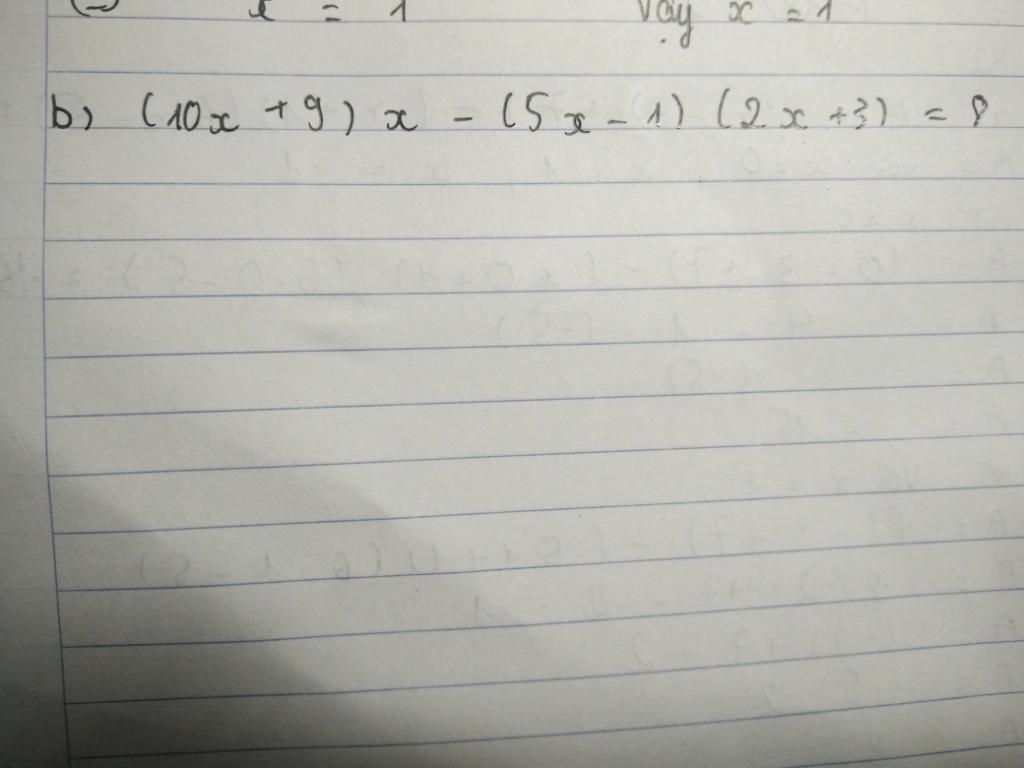 x = 1 Vậy x = 1
b) (10x + 9) x - (5x - 1) (2x + 3) = 8